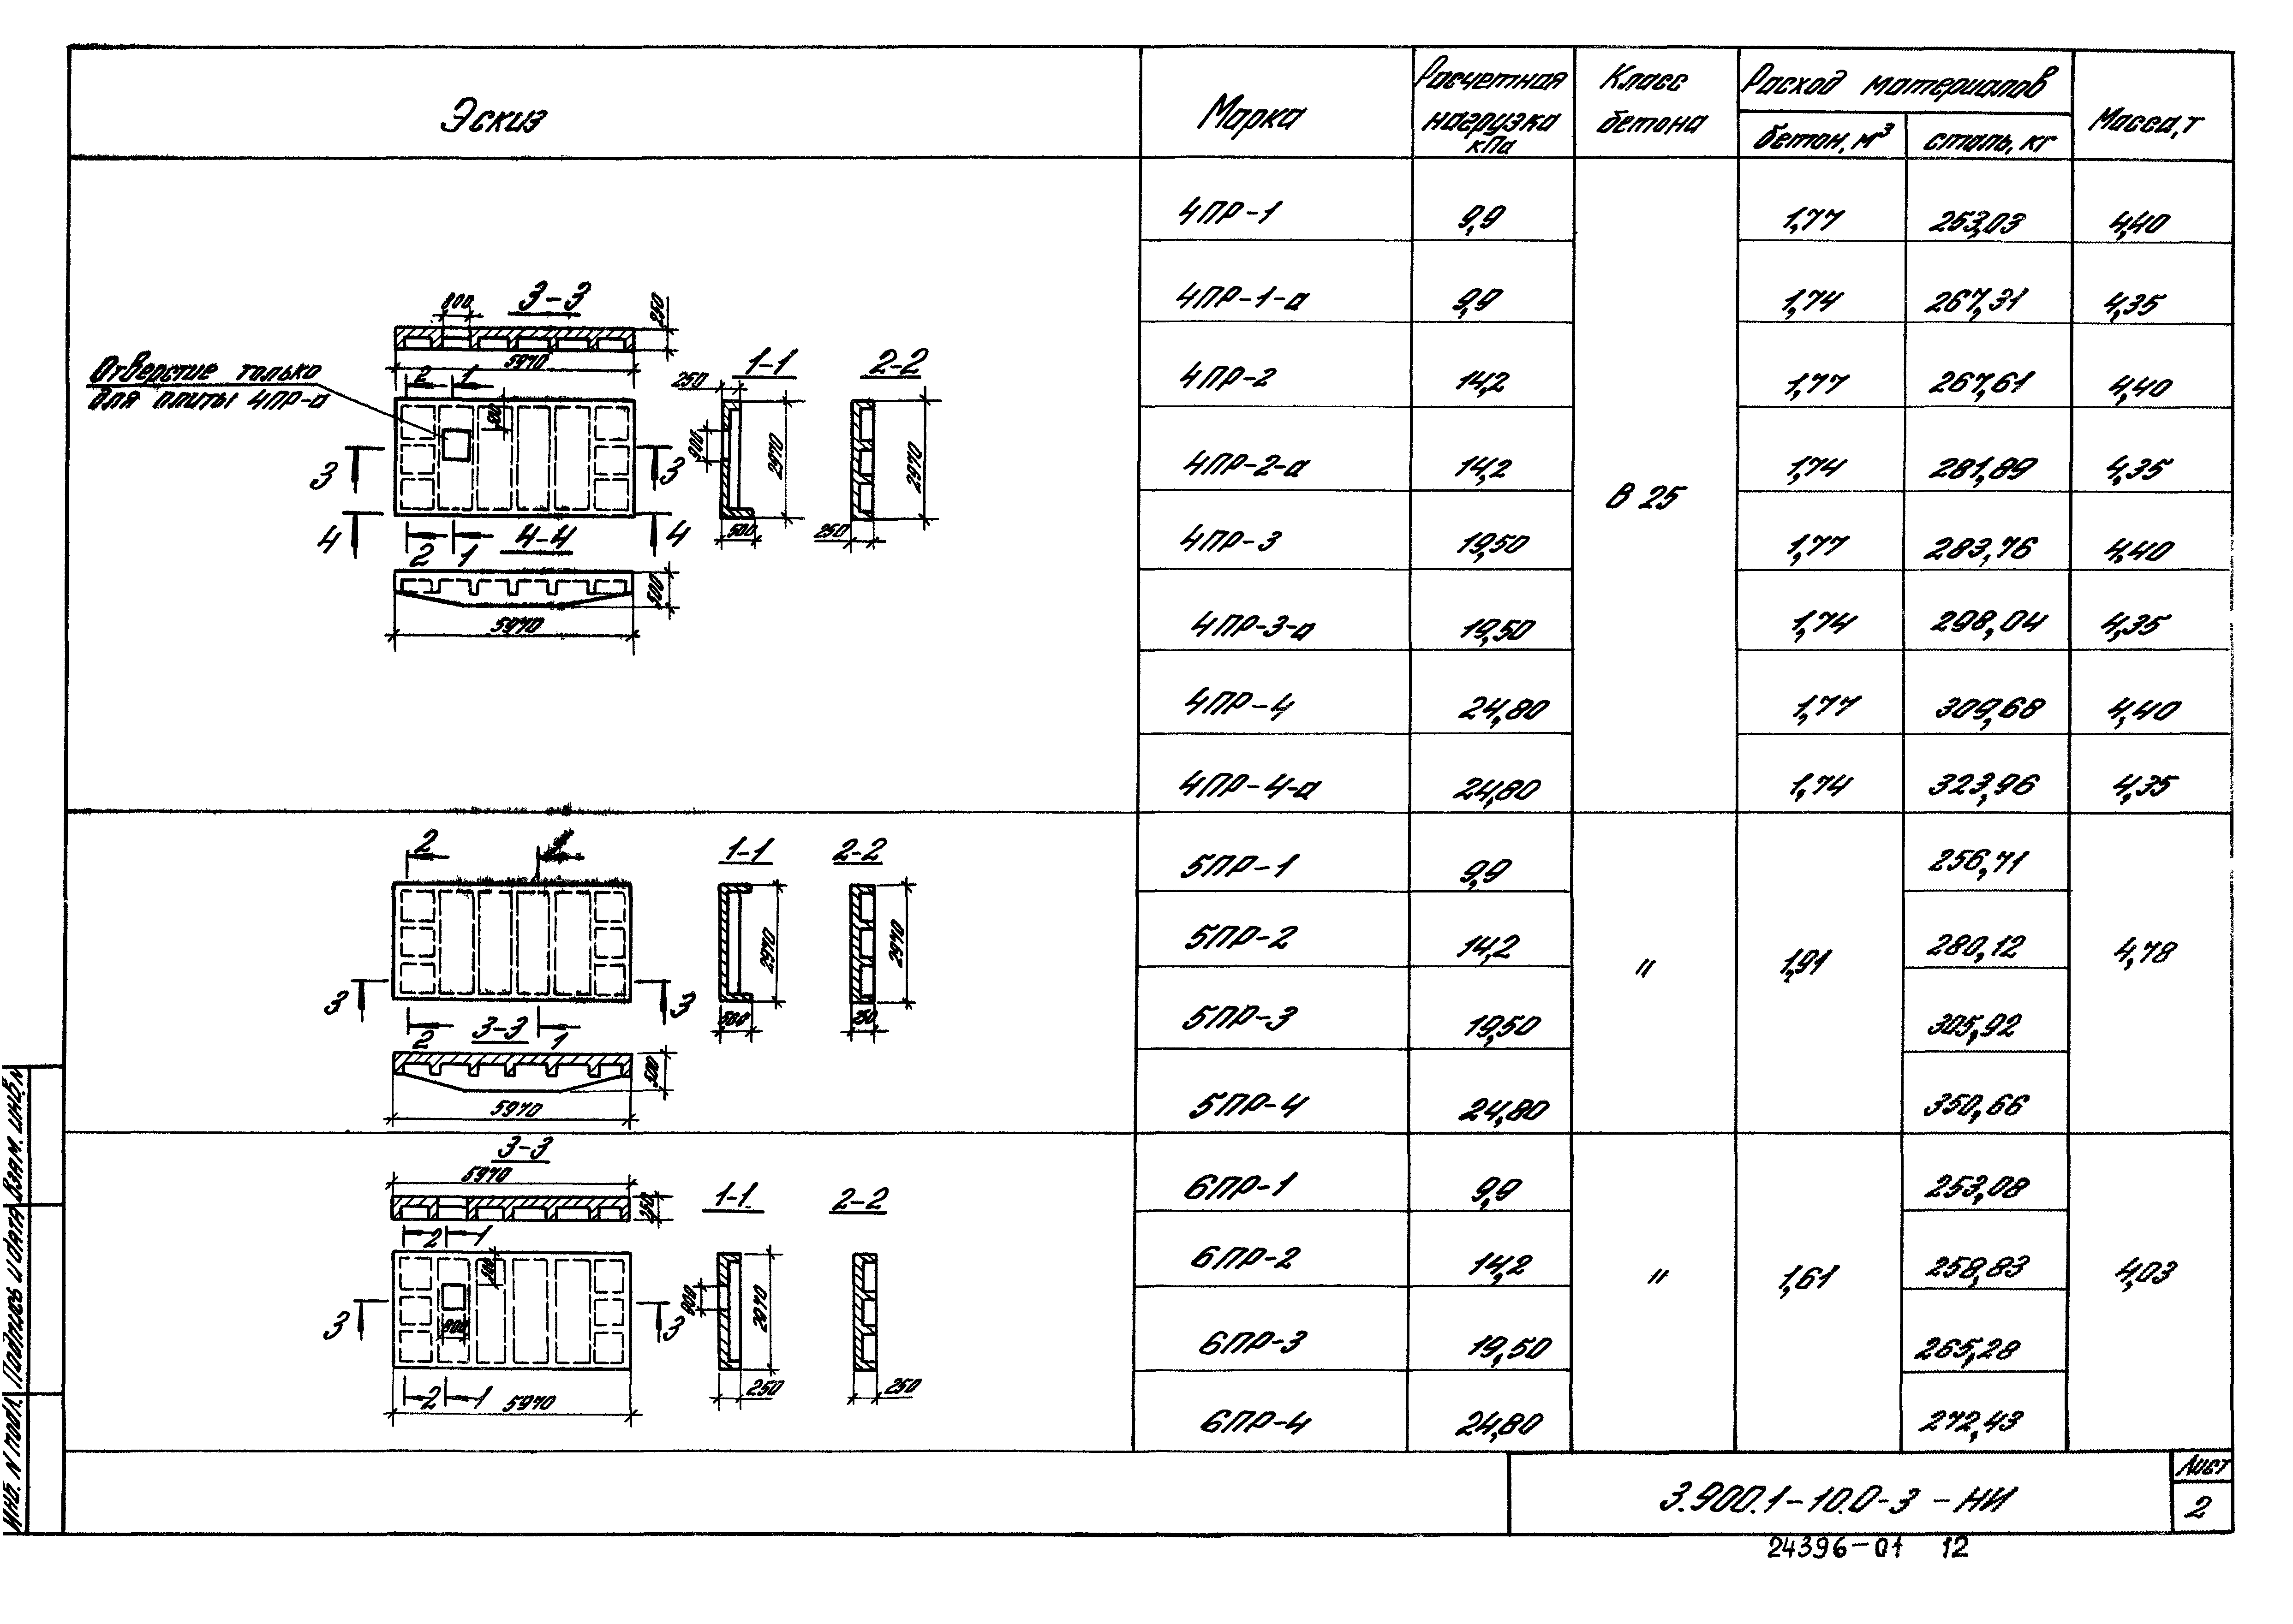 Эскиз
Марка
Расчетная нагрузка кПа
Класс бетона
Расход материалов
бетон, м³
сталь, кг
Масса, т
3-3
800
250
5970
Отверстие только
для плиты 4ПР-а
2 1
900
3 3
4 4
2 1
4-4
500
5970
1-1
250
900
2970
500
2-2
2970
250
4ПР-1 9,9 1,77 253,03 4,40
4ПР-1-а 9,9 1,74 267,31 4,35
4ПР-2 14,2 1,77 267,61 4,40
4ПР-2-а 14,2 1,74 281,89 4,35
В 25
4ПР-3 19,50 1,77 283,76 4,40
4ПР-3-а 19,50 1,74 298,04 4,35
4ПР-4 24,80 1,77 309,68 4,40
4ПР-4-а 24,80 1,74 323,96 4,35
2
3 3
2 3-3 1
500
5970
1-1
2970
500
2-2
2970
250
5ПР-1 9,9 256,71
5ПР-2 14,2 " 1,91 280,12 4,78
5ПР-3 19,50 305,92
5ПР-4 24,80 350,66
3-3
5970
250
2 1
3 3
800
2 1
5970
1-1
900
2970
250
2-2
250
6ПР-1 9,9 253,08
6ПР-2 14,2 " 1,61 258,83 4,03
6ПР-3 19,50 265,28
6ПР-4 24,80 272,43
Инв. N подл. Подпись и дата Взам. инв. N
3.900.1-10.0-3 - НИ
Лист
2
24396-01 12